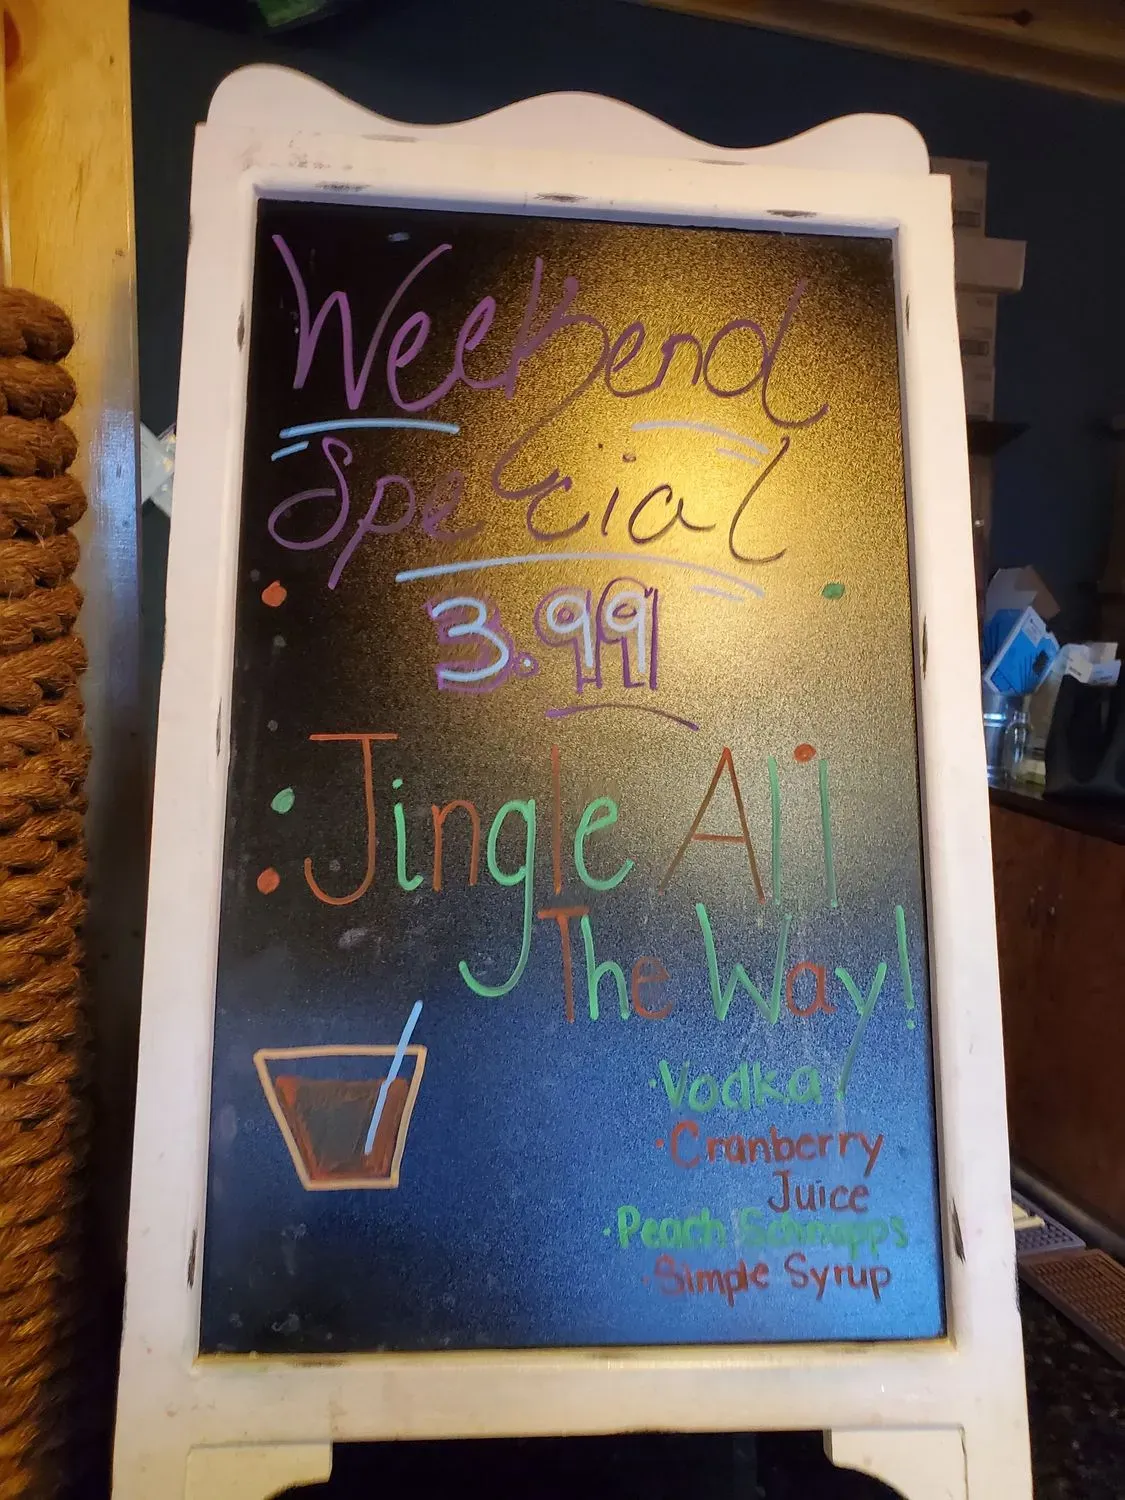 Weekend
Special
3.99
Jingle All
The Way!
·Vodka
·Cranberry
Juice
·Peach Schnapps
·Simple Syrup